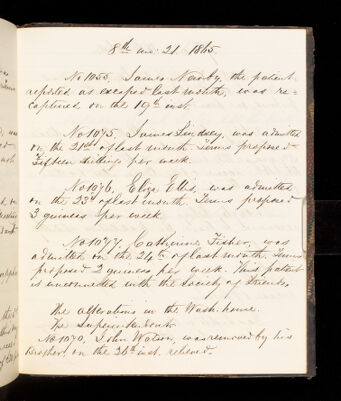 8th mo: 21 1865
No 1055, James Newby, the patient
reported as escaped last month, was re-
captured on the 19th inst.
No 1075, James Lindsey, was admitted
on the 21st of last month. Terms proposed
Fifteen shillings per week.
No 1076, Eliza Ellis, was admitted
on the 23rd of last month. Terms proposed
3 guineas per week.
No 1077, Catherine Fisher, was
admitted on the 24th of last month. Terms
proposed 2 guineas per week. This patient
is unconnected with the Society of Friends.
The alterations in the Wash house.
The Superintendent
No 1070, John Watson, was removed by his
Brother, on the 26th inst. relieved.